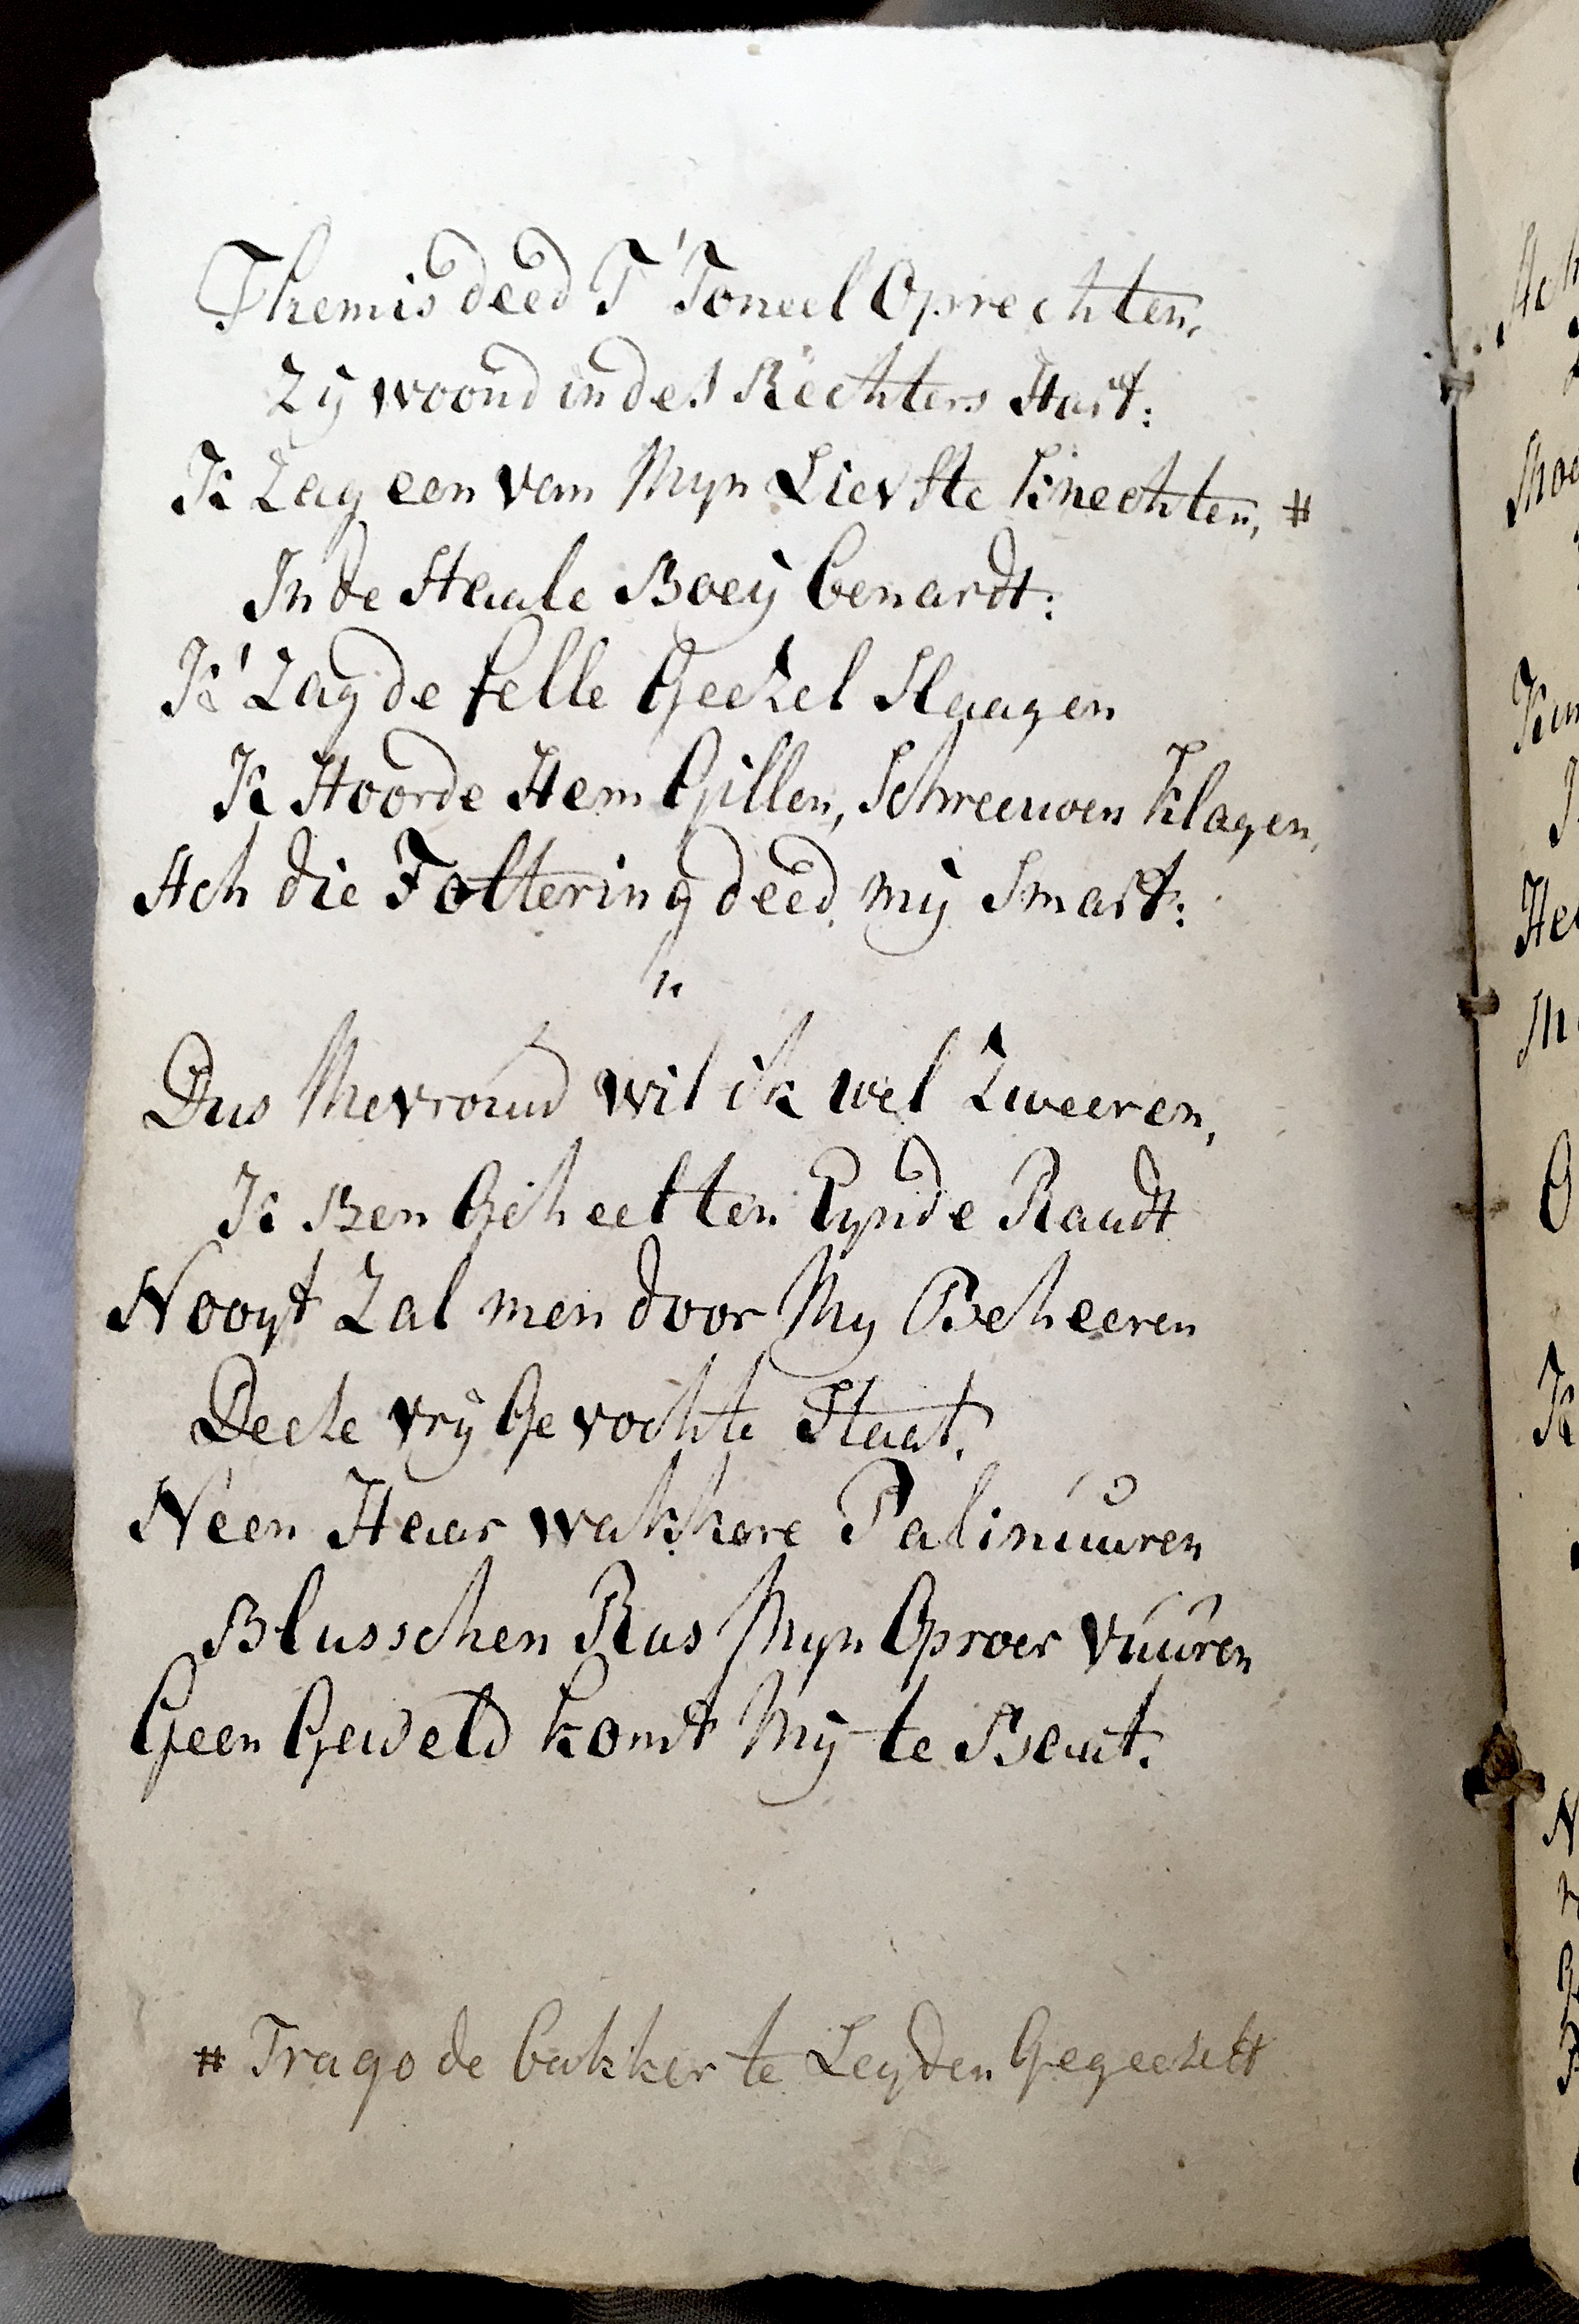 Themis deed T' Toneel Oprechten,
Zÿ woond in des Rechters Hart:
Ik Zag een van Myn Lievste Knechten, #
In de Staale Boeÿ benardt:
Ik' Zag de felle Geezel Slaagen
Ik Hoorde Hem Gillen, Schreeuwen Klagen,
Ach die Foltering deed mÿ Smart:
"
Dus Mevrouw wil ik wel Zweeren,
Ik Ben Geheel ten Eynde Raadt
Nooyt Zal men door My Beheeren
Deeze vrÿ Gevochte Staat.
Neen Haar wakkere Palinuuren
Blusschen Ras Myn Oproer vuuren
Geen Geweld komt Mÿ te Baat.
# Trago de bakker te Leyden Gegeezelt
Ach